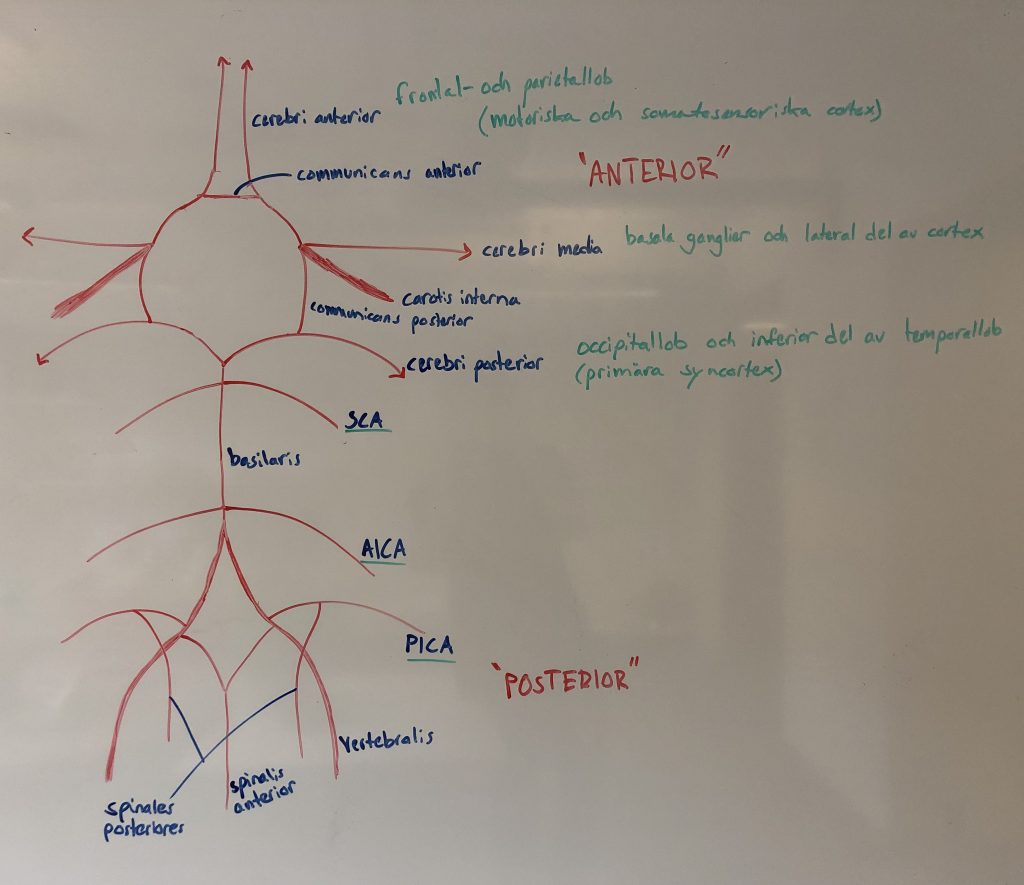 frontal- och parietallob
cerebri anterior
(motoriska och somatosensoriska cortex)
communicans anterior
"ANTERIOR"
cerebri media
basala ganglier och lateral del av cortex
carotis interna
communicans
posterior
cerebri posterior
occipitallob och inferior del av temporallob
(primära syncortex)
SCA
basilaris
AICA
PICA
"POSTERIOR"
vertebralis
spinalis
anterior
spinales
posteriores